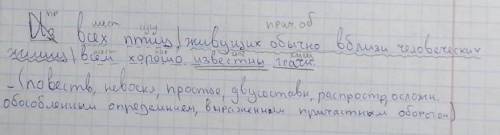 пр сущ. прич. об
Из всех птиц, живущих обычно вблизи человеческих
жилищ, всем хорошо известны грачи.
(повеств, невоскл, простое, двусоставн, распростр, осложн.
обособленным определением, выраженным причастным оборотом)